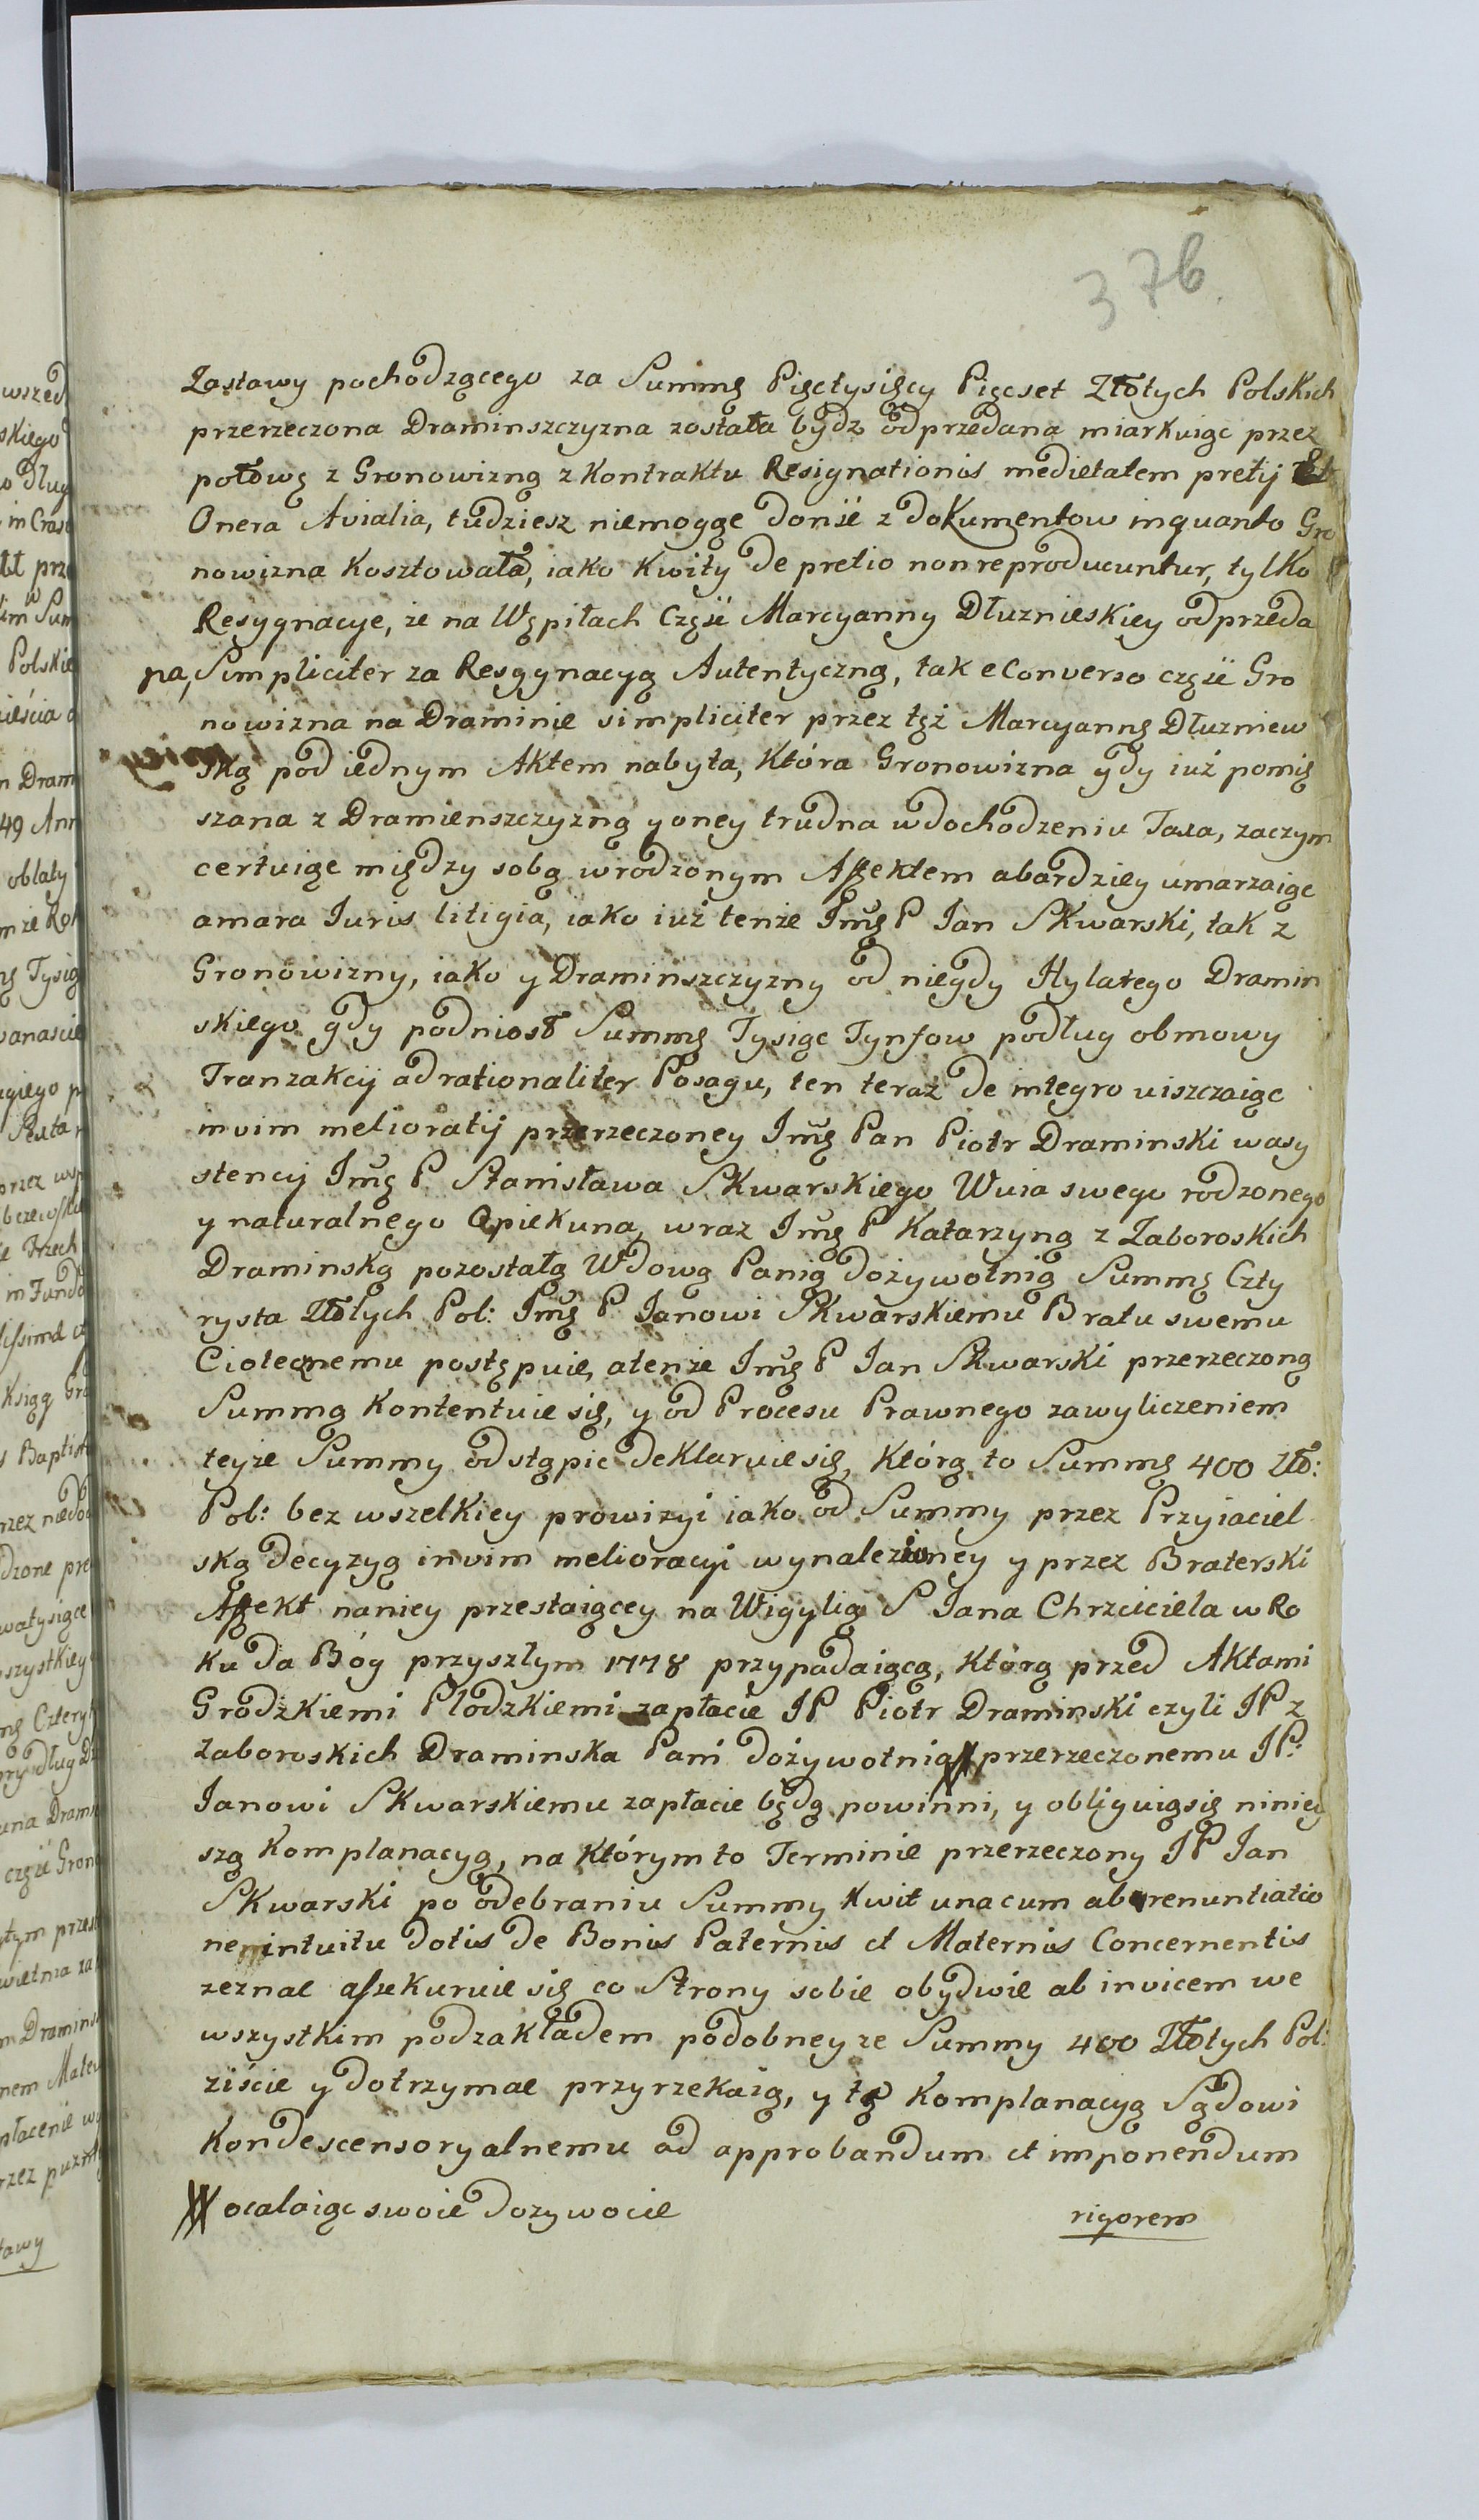 376.
Zastawy pochodzącego za Summę Pięctysięcy Pięcset Złotych Polskich
przerzeczona Draminszczyzna została bydz odprzedana miarkuiąc przez
połowę z Gronowizną z Kontraktu Resignationis medietatem pretij
Onera Avialia, tudziesz niemogąc donść z doKumentow inquanto Gro
nowizna Kosztowała, iako Kwity de pretio nonreproducuntur, tylko
Resygnacye, że na Wępiłach Część Marcyanny Dłuznieskiey odprzeda
na, Simpliciter za Resygnacyą Autentyczną, tak e Converso część Gro
nowizna na Draminie simpliciter przez tęż Marcyannę Dłuzniew
ską pod iednym Aktem nabyta, Która Gronowizna gdy iuż pomię
szana z Dramienszczyzną y oney trudna w dochodzeniu Taxa, zaczym
certuiąc między sobą wrodzonym Affektem abardziey umarzaiąc
amara Iuris litigia, iako iuż tenże Jmę P Ian Skwarski, tak z
Gronowizny, iako y Draminszczyzny od niegdy Hylarego Dramin
skiego gdy podniosł Summę Tysiąc Tynfow podług obmowy
Tranzakcij ad rationaliter Posagu, ten teraz de integro uiszczaiąc
invim melioratij przerzeczoney Jmę Pan Piotr Draminski wasy
stencij Jmę P. Stanisława Skwarskiego Wuia swego rodzonego
y naturalnego Opiekuna, wraz Jmę P Katarzyną z Zaboroskich
Draminską pozostałą Wdową Panią dożywotnią Summę Czty
rysta Złotych Pol: Jmę P Ianowi Skwarskiemu Bratu swemu
Ciotecznemu postępuie, atenże Jmę P Ian Skwarski przerzeczoną
Summą Kontentuie się, y od Procesu Prawnego zawyliczeniem
teyże Summy odstąpic deklaruie się, Którą to Summę 400 Zło:
Pol: bez wszelkiey prowizyi iako od Summy przez Przyiaciel
ską decyzyą invim melioracyi wynalezioney y przez Braterski
Affekt naniey przestaiącey na Wigylią S Iana Chrzciciela w Ro
ku da Bóg przyszłym 1778 przypadaiącą, Którą przed Aktami
Grodzkiemi Płodzkiemi zapłacic JP Piotr Draminski czyli JP z
Zaboroskich Draminska Pani dożywotnia # przerzeczonemu JP:
Ianowi Skwarskiemu zapłacic będą powinni, y obliguiąsię niniey
szą Komplanacyą, na Którym to Terminie przerzeczony JP Ian
Skwarski po odebraniu Summy Kwit unacum abrenuntiatio
ne intuitu dotis de Bonis Paternis et Maternis Concernentis
zeznac assekuruie się co Strony sobie obydwie ab invicem we
wszystkim podzakładem podobney ze Summy 400 Złotych Pol:
ziście y dotrzymac przyrzekaią, y tę Komplanacyą Sądowi
Kondescensoryalnemu ad approbandum et imponendum
# ocalaiąc swoie dozywocie
rigorem